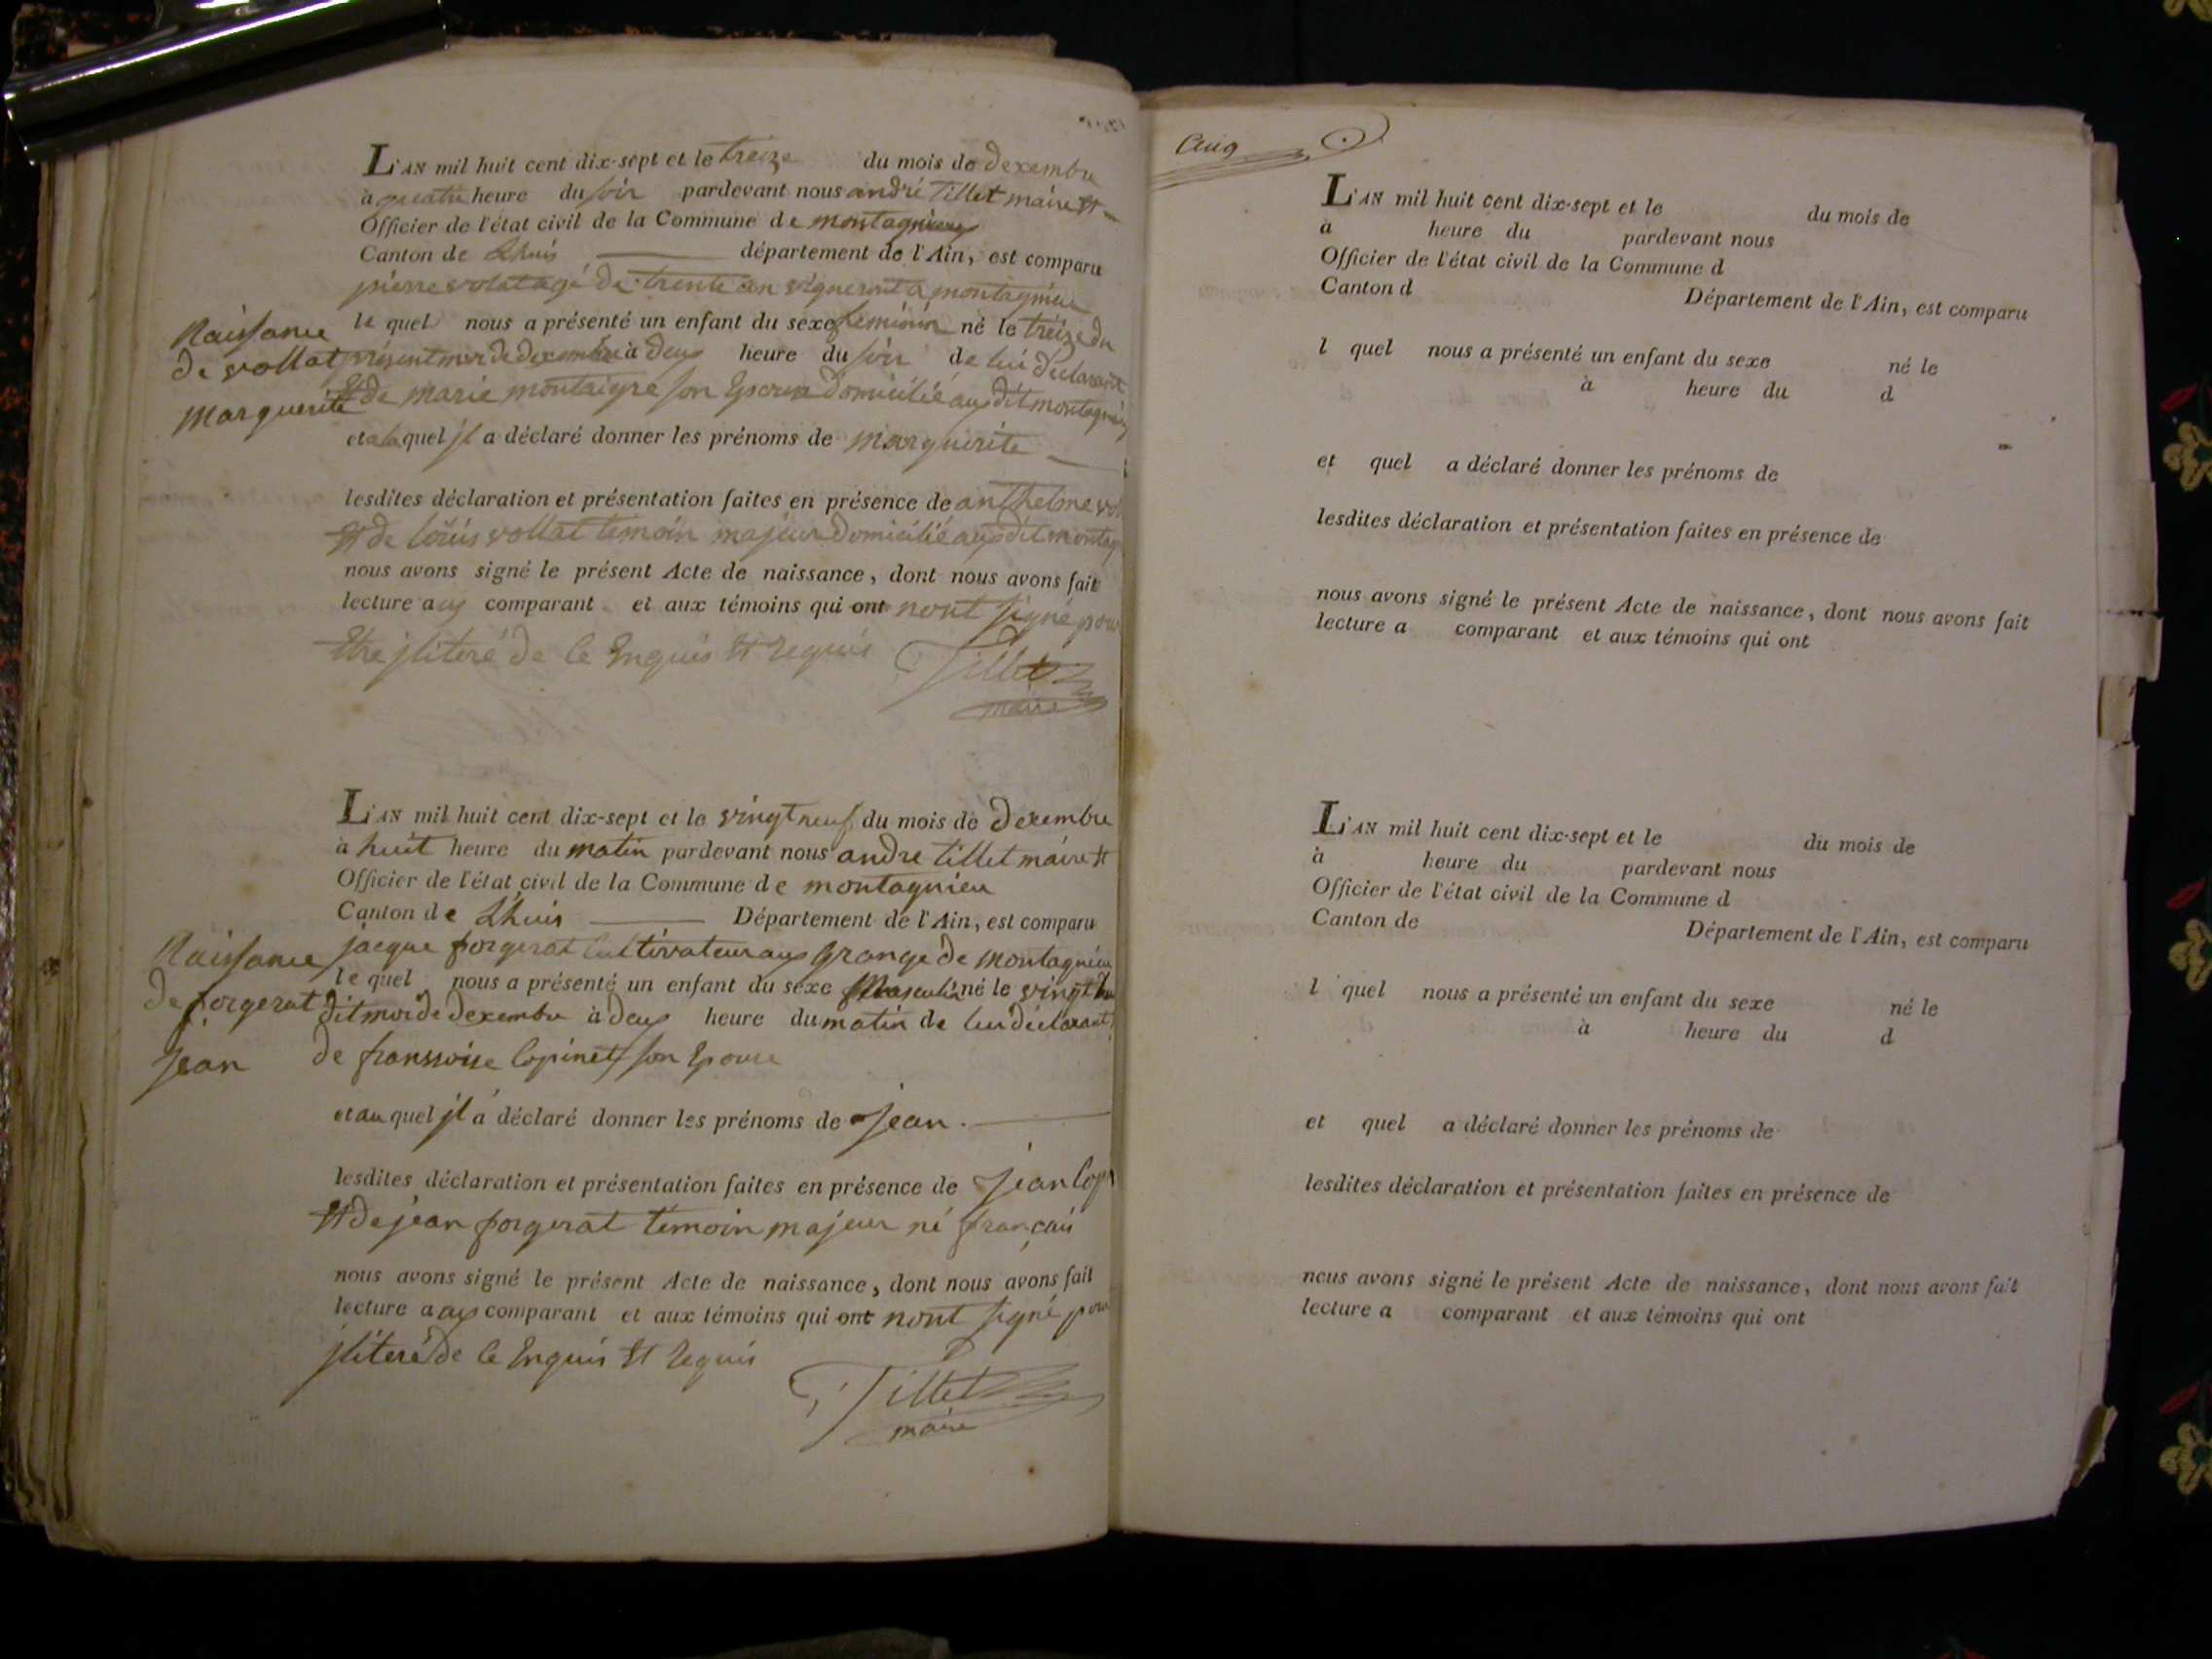 L'AN mil huit cent dix-sept et le treize du mois de dexembre
à quatre heure du soir pardevant nous andré tillet maire et
Officier de l'état civil de la Commune de montagnieu
Canton de Lhuis département de l'Ain, est comparu
pierre volat agé de trente an vigneront a montagnieu
le quel nous a présenté un enfant du sexe feminin né le treize du
présent moi de dexembre à deux heure du soir de lui déclarant
et de marie montaigre son Epouse domicilié aux dit montagnieu
et a la quel jl a déclaré donner les prénoms de marguerite
lesdites déclaration et présentation faites en présence de anthelme vol
et de louis vollat temoin majeur domicilié aux dit montag
nous avons signé le présent Acte de naissance, dont nous avons fait
lecture aux comparant et aux témoins qui ont nont signé pour
Etre jliteré de ce Enquis et requis
Tillet
maire
Naissance
de vollat
marguerite
L'AN mil huit cent dix-sept et le vingt neuf du mois de dexembre
à huit heure du matin pardevant nous andre tillet maire et
Officier de l'état civil de la Commune de montagnieu
Canton de Lhuis Département de l'Ain, est comparu
jacque forgerat cultivateur aux grange de montagnieu
le quel nous a présenté un enfant du sexe masculin né le vingt
dit moi de dexembre à deux heure du matin de lui déclarant
de franssoise Copinet son Epouse
et au quel jl a déclaré donner les prénoms de jean.
lesdites déclaration et présentation faites en présence de jean Cop
et de jean forgerat témoin majeur né français
nous avons signé le présent Acte de naissance, dont nous avons fait
lecture aux comparant et aux témoins qui ont nont signé pour
jliteré de ce Enquis et requis
Tillet
maire
Naissance
de forgerat
jean
L'AN mil huit cent dix-sept et le du mois de
à heure du pardevant nous
Officier de l'état civil de la Commune d
Canton d Département de l'Ain, est comparu
l quel nous a présenté un enfant du sexe né le
à heure du d
et quel a déclaré donner les prénoms de
lesdites déclaration et présentation faites en présence de
nous avons signé le présent Acte de naissance, dont nous avons fait
lecture a comparant et aux témoins qui ont
L'AN mil huit cent dix-sept et le du mois de
à heure du pardevant nous
Officier de l'état civil de la Commune d
Canton de Département de l'Ain, est comparu
l quel nous a présenté un enfant du sexe né le
à heure du d
et quel a déclaré donner les prénoms de
lesdites déclaration et présentation faites en présence de
nous avons signé le présent Acte de naissance, dont nous avons fait
lecture a comparant et aux témoins qui ont